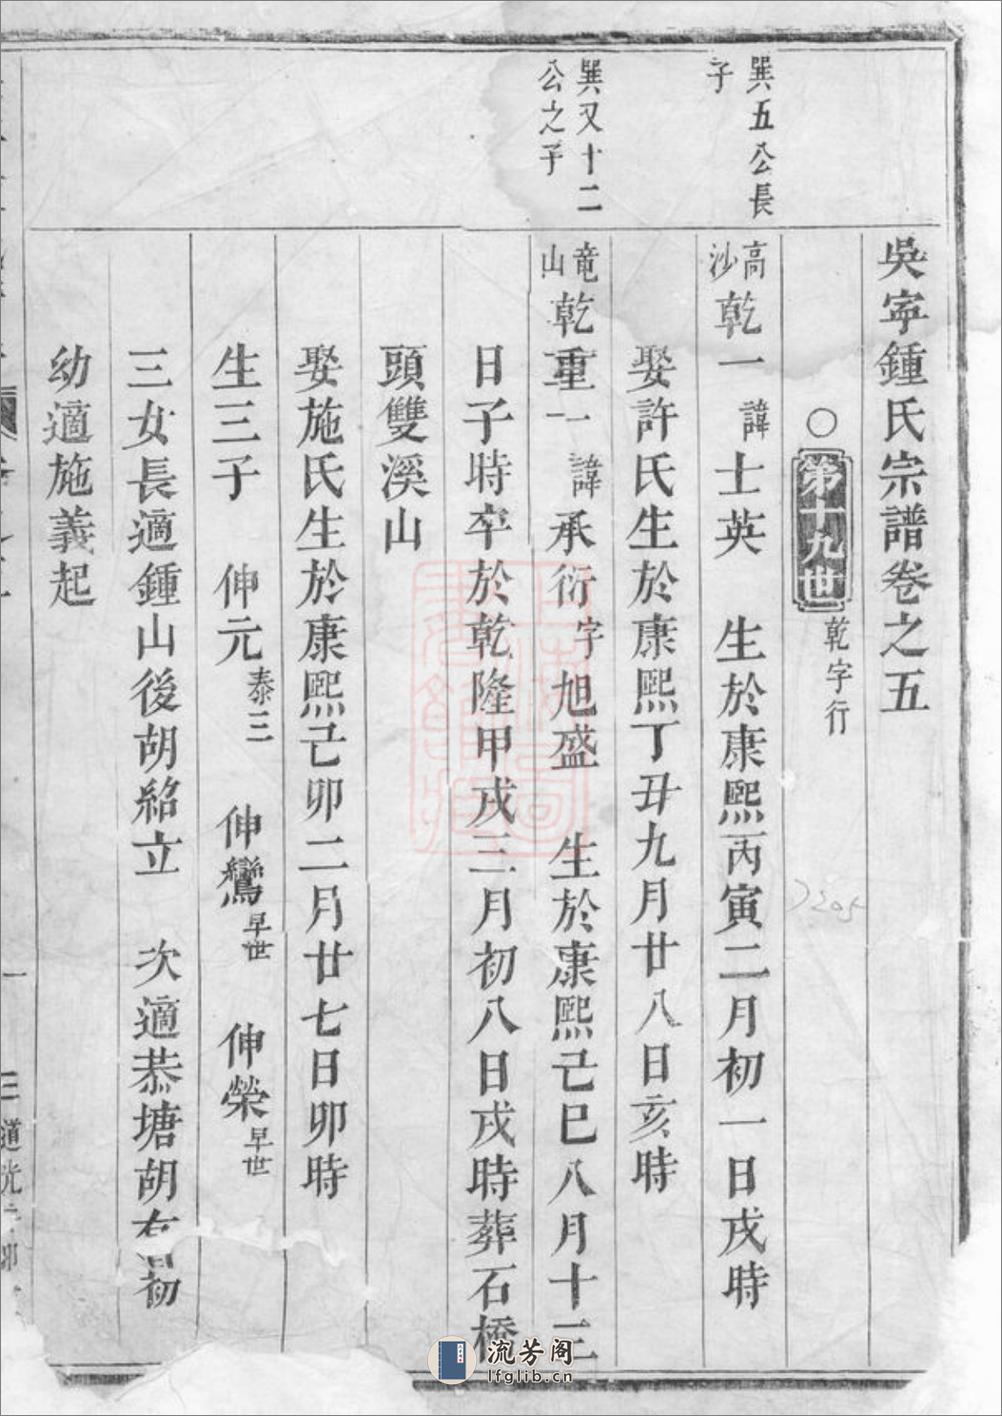 吳寕鍾氏宗譜卷之五
○第十九世 乾字行
巽五公長
子
高沙乾一 諱士英 生於康熙丙寅二月初一日戌時
娶許氏生於康熙丁丑九月廿八日亥時
巽又十二
公之子
竜山乾重一 諱承衍字旭盛 生於康熙己巳八月十三
日子時卒於乾隆甲戌三月初八日戌時葬石橋
頭雙溪山
娶施氏生於康熙己卯二月廿七日卯時
生三子 伸元泰三 伸鸞早世 伸榮早世
三女長適鍾山後胡紹立 次適恭塘胡有初
幼適施義起
道光
流芳阁
lfglib.cn